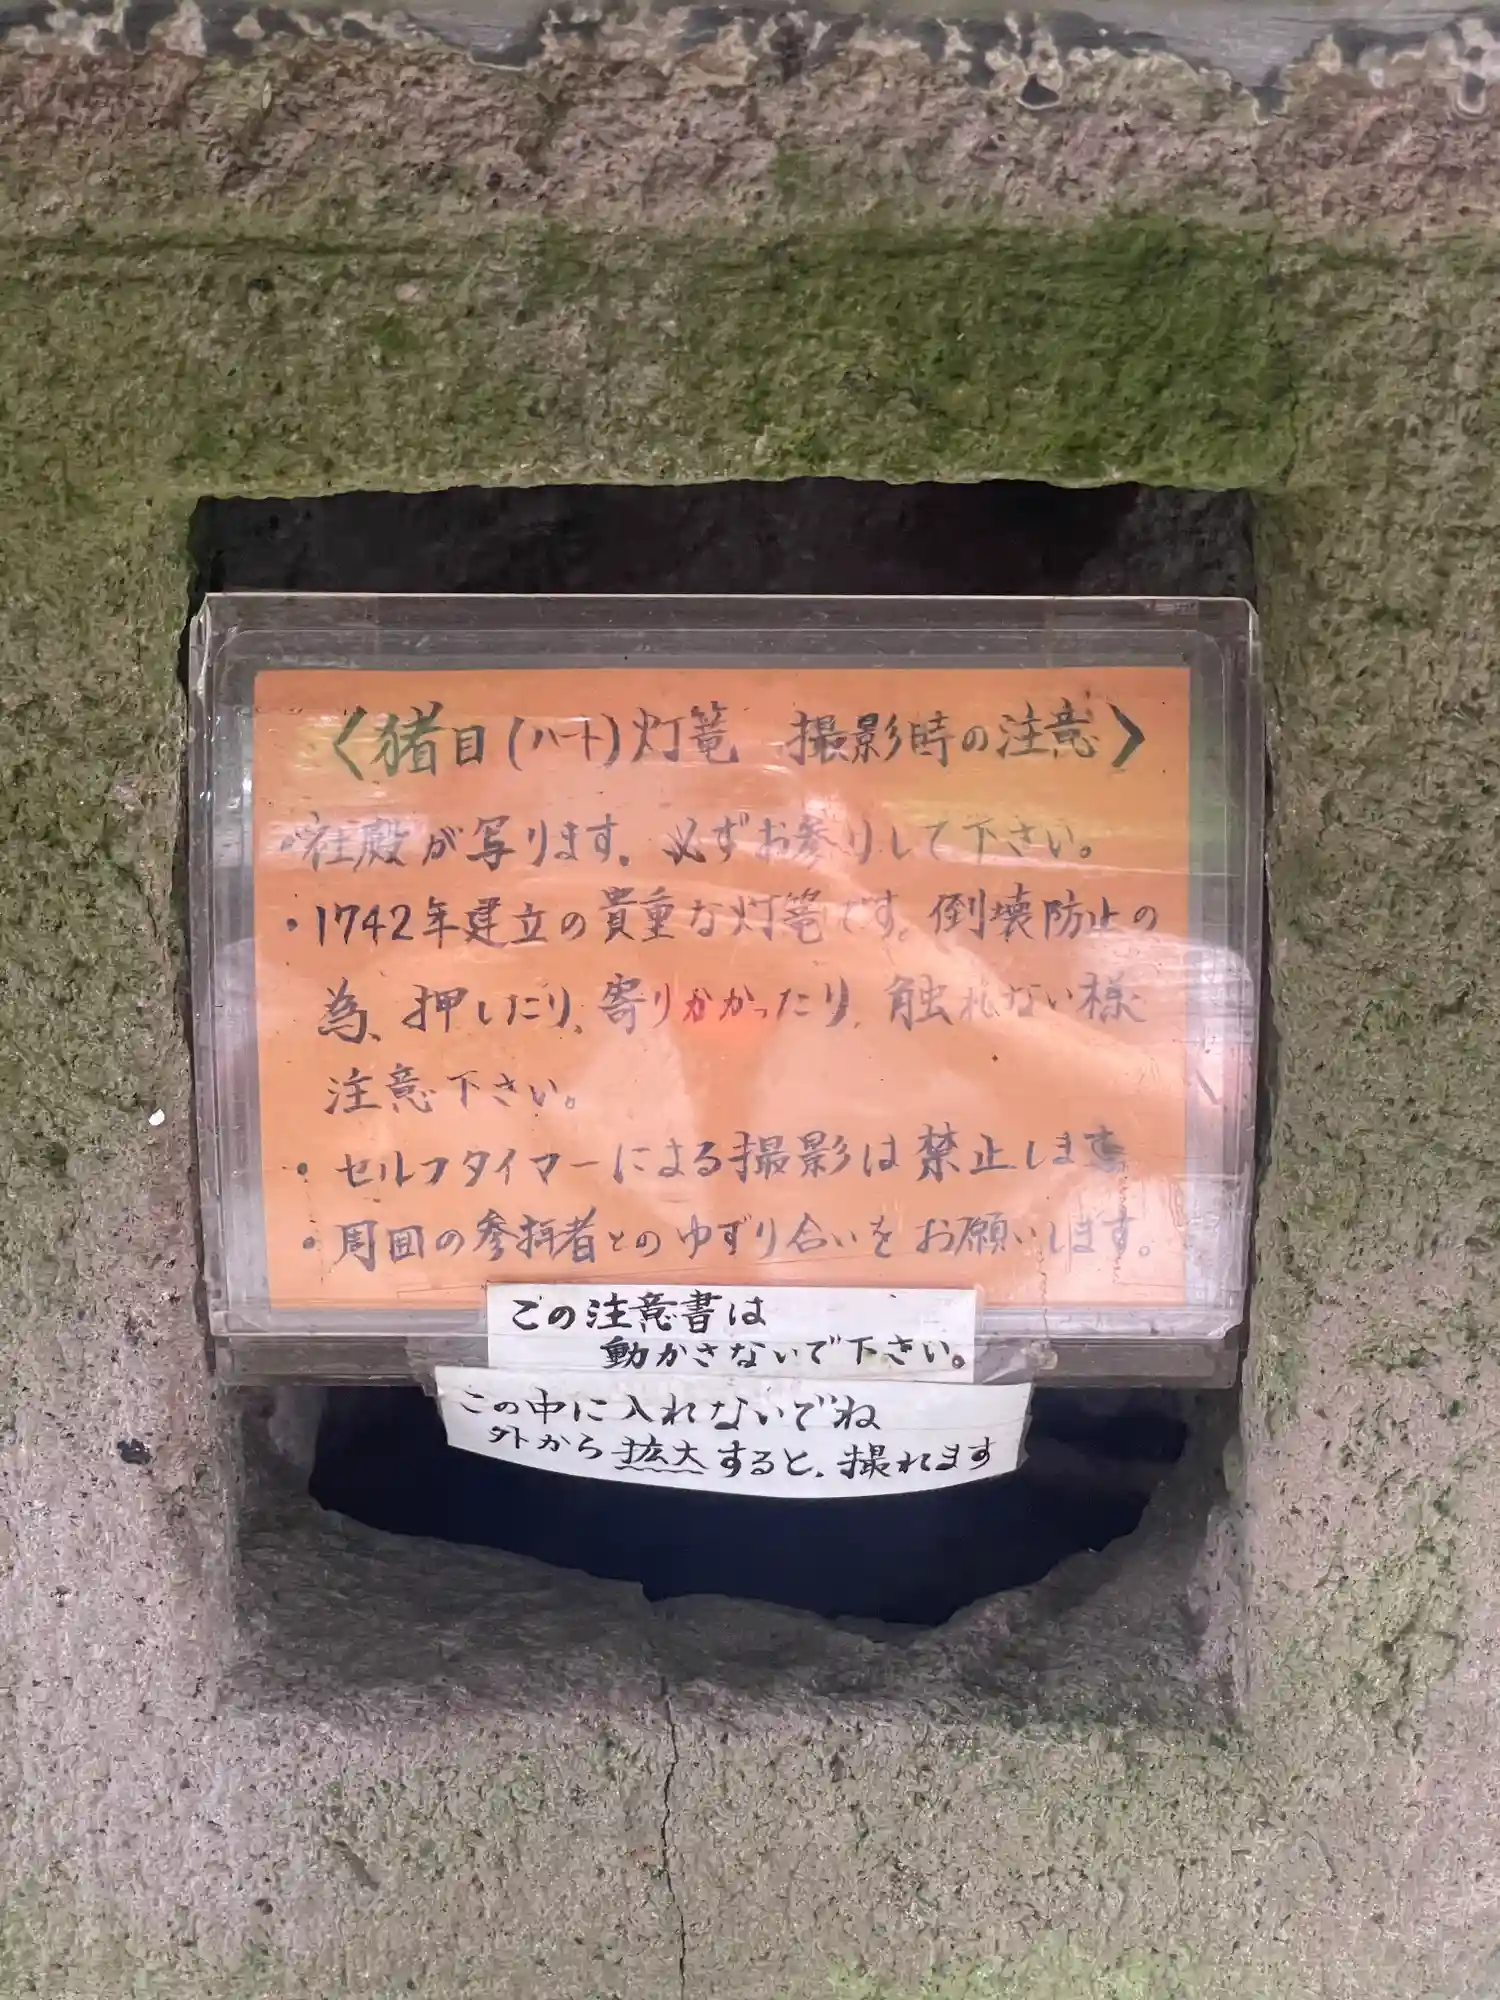 〈猪目(ハート)灯篭 撮影時の注意〉
・社殿が写ります。必ずお参りして下さい。
・1742年建立の貴重な灯篭です。倒壊防止の
為、押したり、寄りかかったり、触れない様
注意下さい。
・セルフタイマーによる撮影は禁止します
・周囲の参拝者とのゆずり合いをお願いします。
この注意書は
動かさないで下さい。
この中に入れないでね
外から拡大すると、撮れます